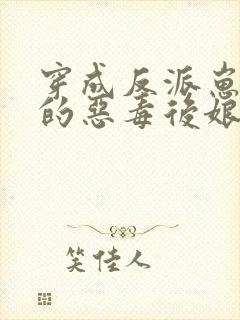 穿成反派崽崽
的惡毒後娘
笑佳人